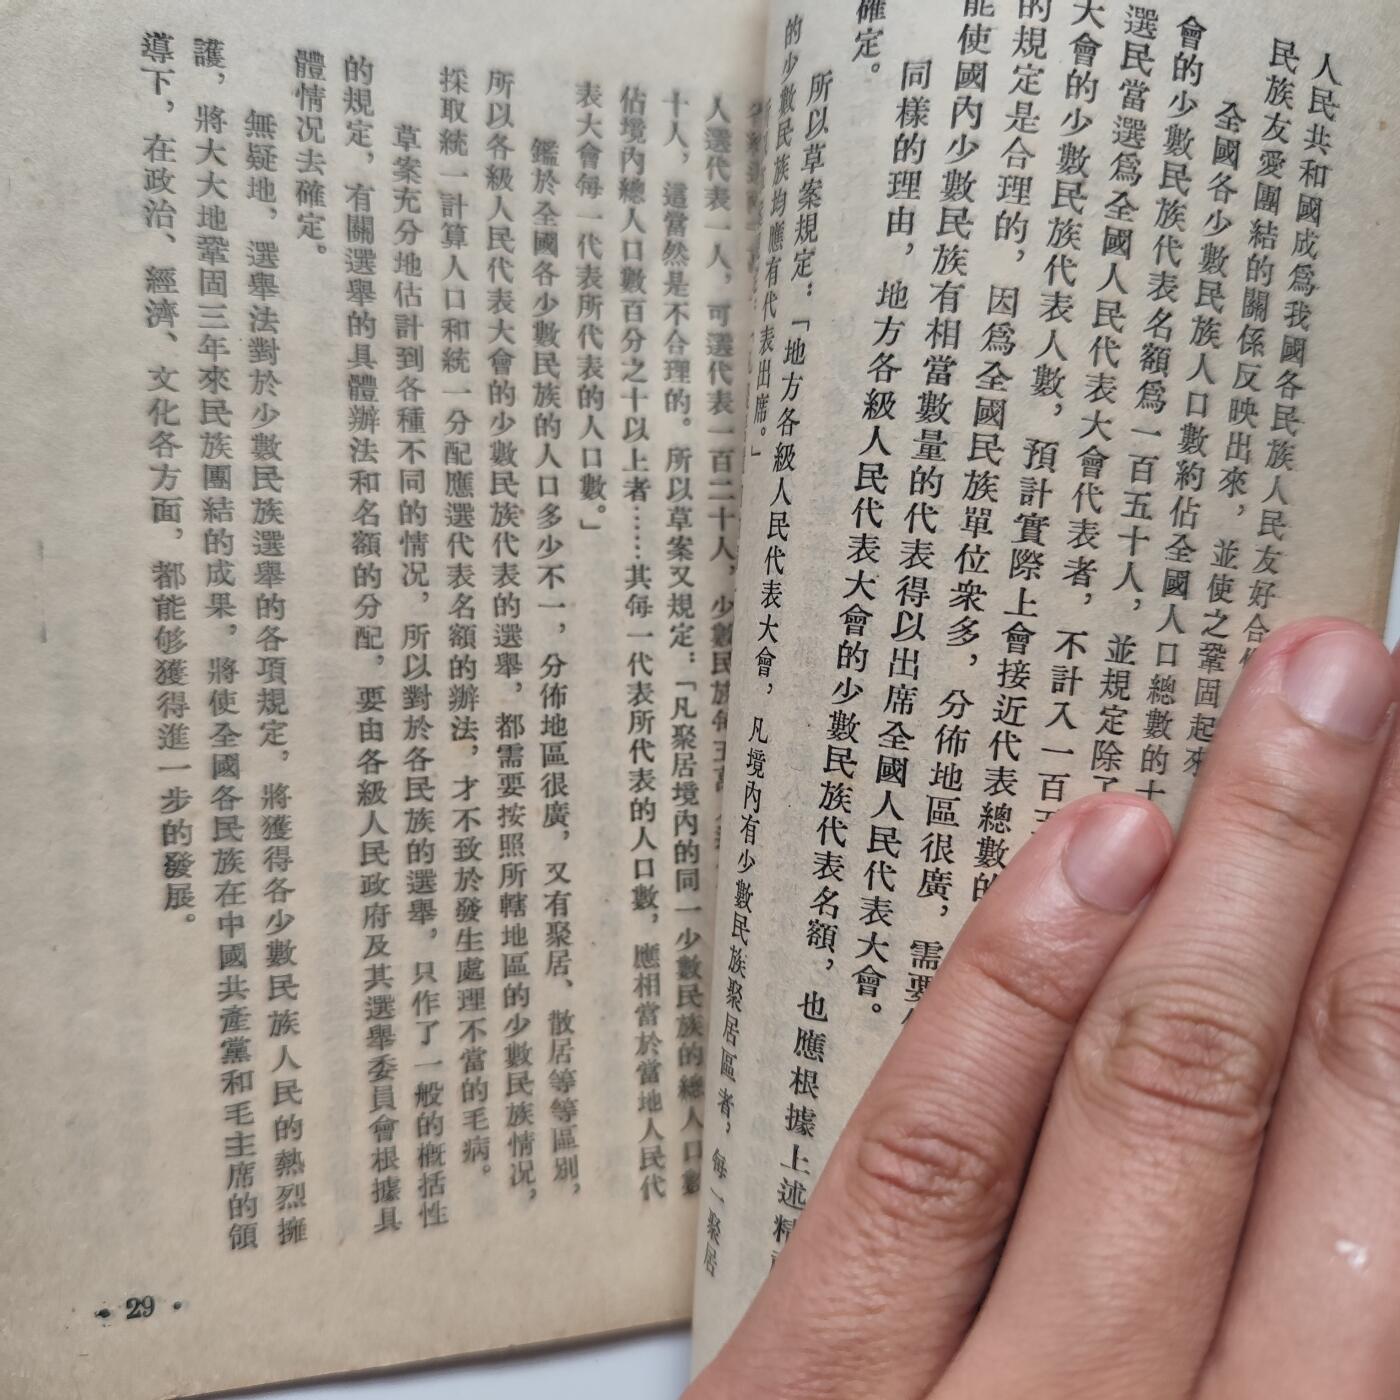 人民共和國成爲我國各民族人民友好合
民族友愛團結的關係反映出來，並使之鞏固起來
全國各少數民族人口數約佔全國人口總數的十
會的少數民族代表名額爲一百五十人，並規定除了
選民當選爲全國人民代表大會代表者，不計入一百五
大會的少數民族代表人數，預計實際上會接近代表總數的
的規定是合理的，因爲全國民族單位衆多，分佈地區很廣，需要
能使國內少數民族有相當數量的代表得以出席全國人民代表大會。
同樣的理由，地方各級人民代表大會的少數民族代表名額，也應根據上述精
確定。
所以草案規定：「地方各級人民代表大會，凡境內有少數民族聚居區者，每一聚居
的少數民族均應有代表出席。」
人選代表一人，可選代表一百二十人，少數民族每五
十人，這當然是不合理的。所以草案又規定：「凡聚居境內的同一少數民族的總人口數
佔境內總人口數百分之十以上者……其每一代表所代表的人口數，應相當於當地人民代
表大會每一代表所代表的人口數。」
鑑於全國各少數民族的人口多少不一，分佈地區很廣，又有聚居、散居等等區別，
所以各級人民代表大會的少數民族代表的選舉，都需要按照所轄地區的少數民族情況，
採取統一計算人口和統一分配應選代表名額的辦法，才不致於發生處理不當的毛病。
草案充分地估計到各種不同的情況，所以對於各民族的選舉，只作了一般的概括性
的規定，有關選舉的具體辦法和名額的分配，要由各級人民政府及其選舉委員會根據具
體情況去確定。
無疑地，選舉法對於少數民族選舉的各項規定，將獲得各少數民族人民的熱烈擁
護，將大大地鞏固三年來民族團結的成果，將使全國各民族在中國共產黨和毛主席的領
導下，在政治、經濟、文化各方面，都能够獲得進一步的發展。
• 29 •